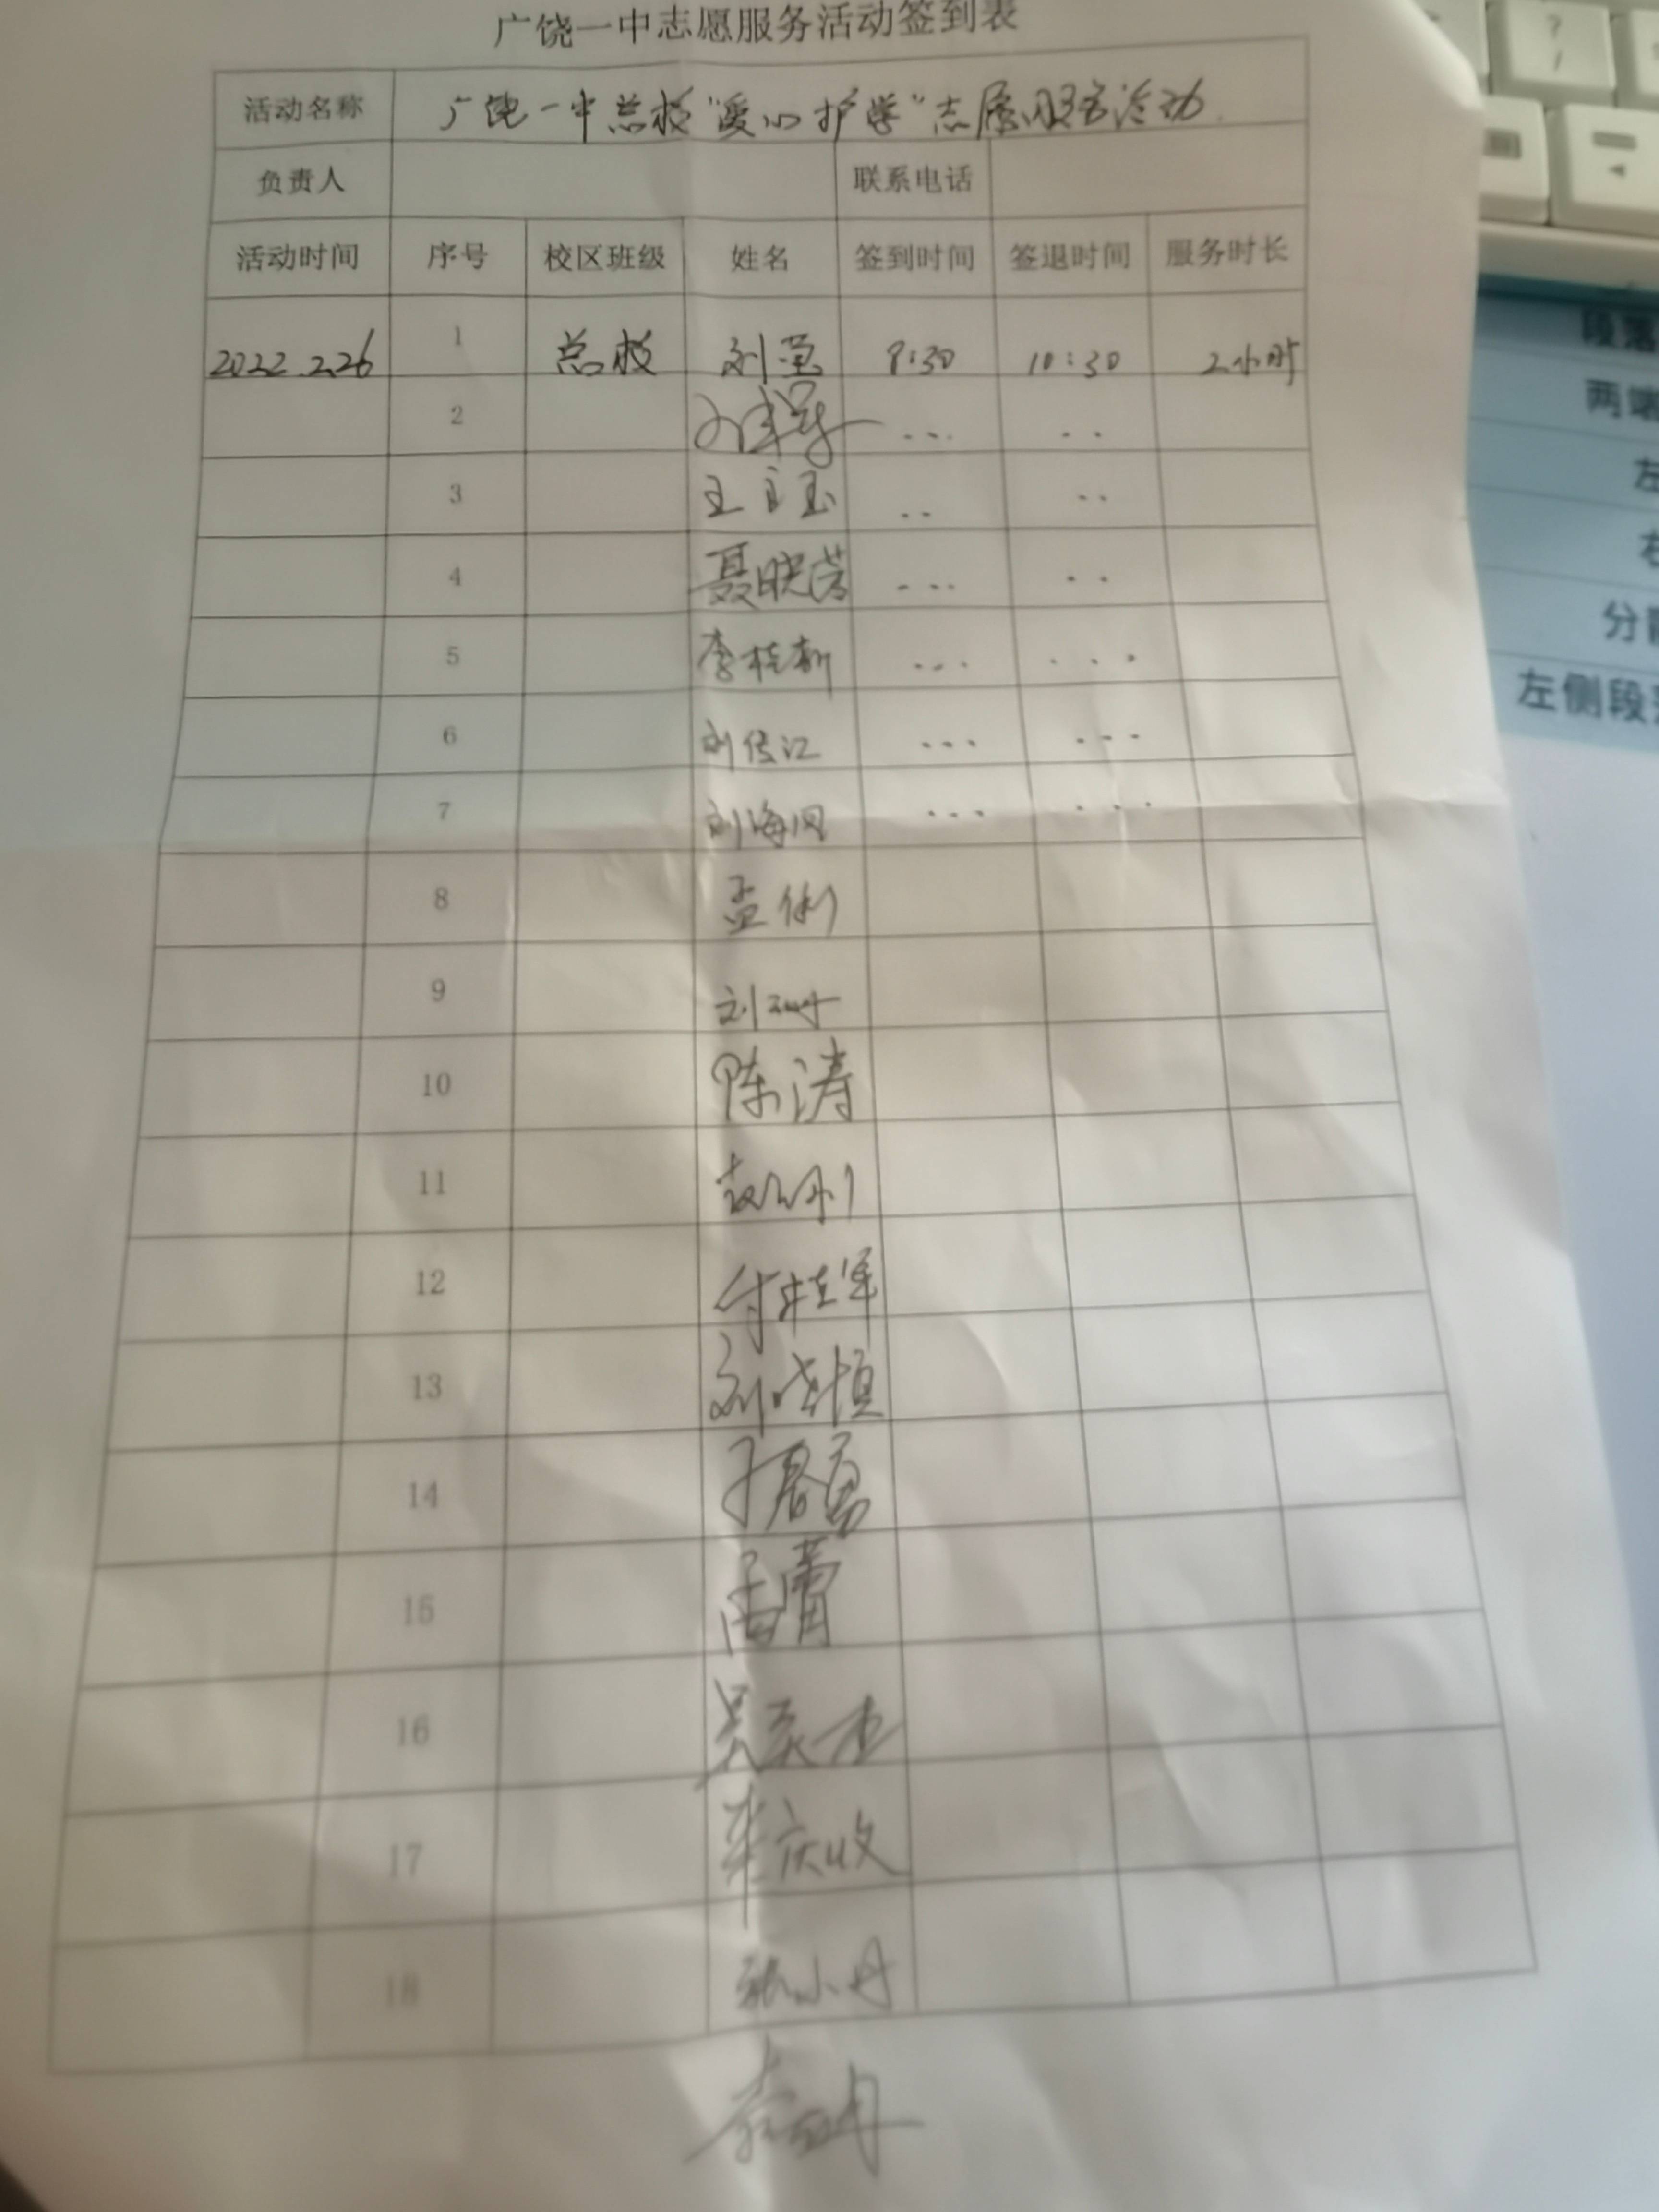 广饶一中志愿服务活动签到表
活动名称 广饶一中总校“爱心护学”志愿服务活动
负责人 联系电话
活动时间 序号 校区班级 姓名 签到时间 签退时间 服务时长
2022.2.26 1 总校 刘莹 8:30 10:30 2小时
2 ... ..
3 .. ..
4 聂晓芳 ... ..
5 李桂新 ... ...
6 刘传江 ... ...
7 刘海 ... ...
8 孟
9 刘
10 陈涛
11
12 付桂军
13 刘
14
15 蕾
16
17 庆收
18 张小丹
段落
两端
左
右
分散
左侧段落